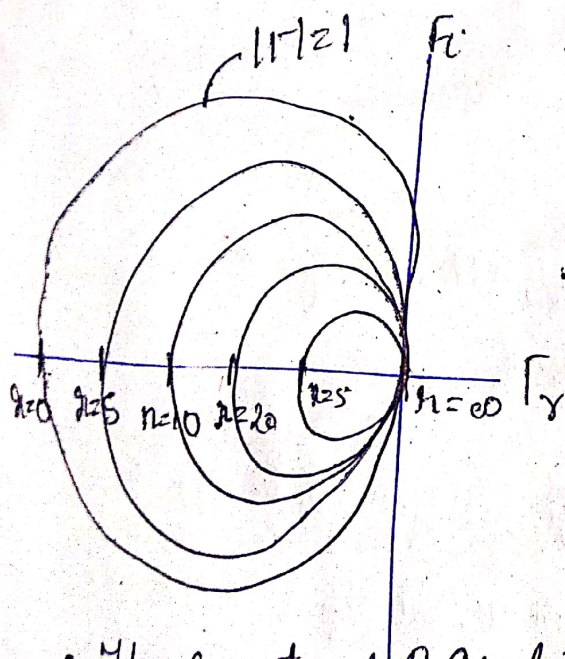 |Γ|=1
Γi
r=0 r=5 r=10 r=20 r=5 r=∞ Γr